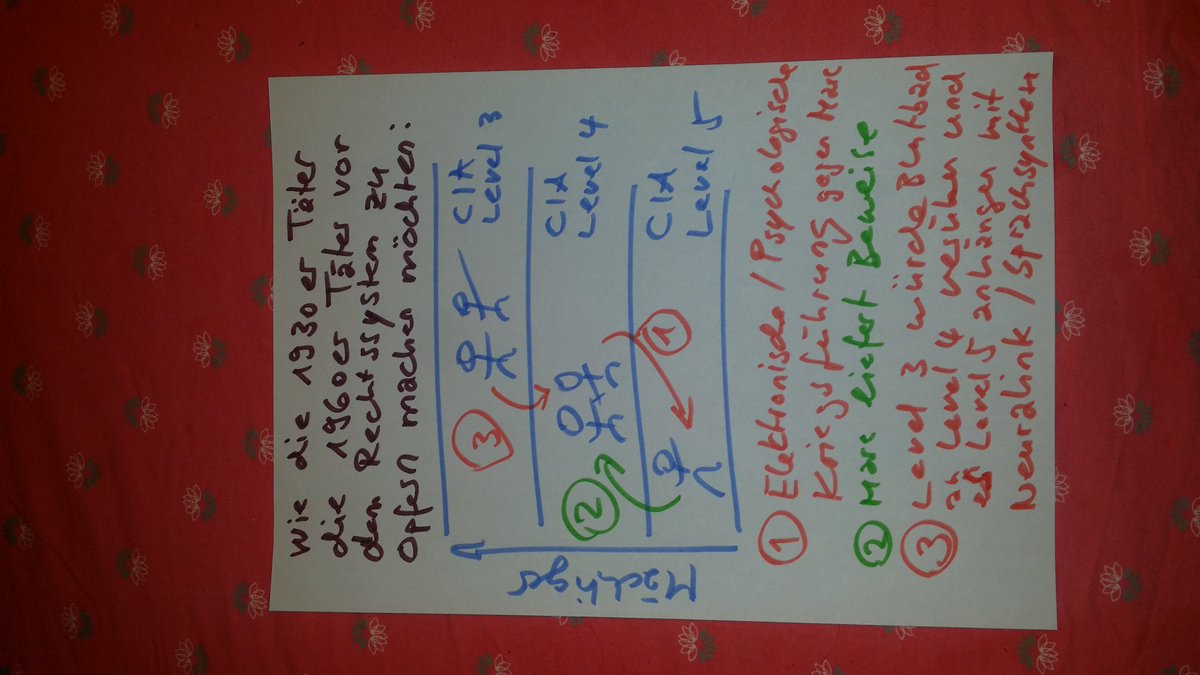 Wie die 1930er Täter
die 1960er Täter vor
den Rechtssystem zu
Opfern machen möchten:
CIA
Level 3
③
CIA
Level 4
②
CIA
Level 5
①
Mächtiger
① Elektronische / Psychologische
Kriegsführung gegen Marc
② Marc liefert Beweise
③ Level 3 würde Blutbad
an Level 4 verüben und
es Level 5 anhängen mit
Neuralink / Sprachsynthese